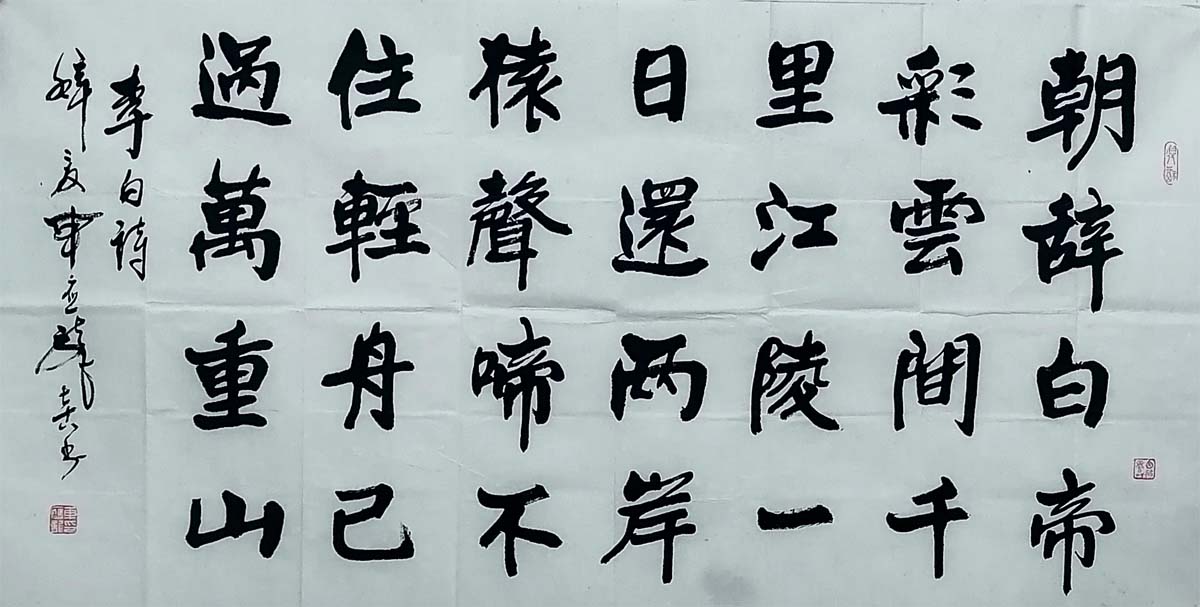 朝辞白帝
彩雲間千
里江陵一
日還两岸
猿聲啼不
住輕舟已
過萬重山
李白詩